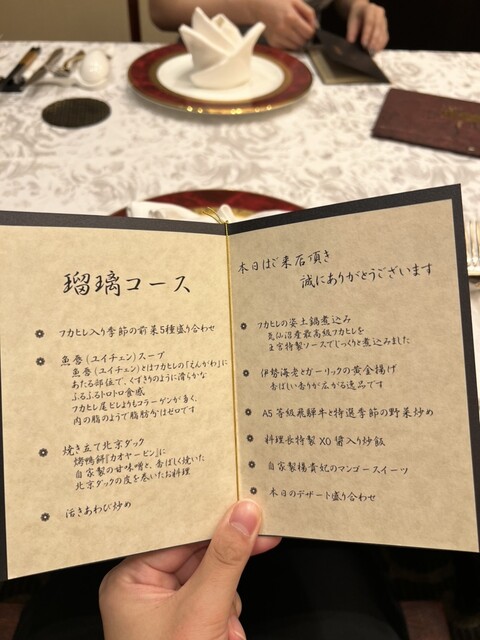 瑠璃コース
フカヒレ入り季節の前菜5種盛り合わせ
魚巻(ユイチェン)スープ
魚巻(ユイチェン)とはフカヒレの「えんがわ」に
あたる部位で、くずきりのように滑らかな
ふるふるトロトロ食感
フカヒレ尾ビレよりもコラーゲンが多く、
肉の脂のようで脂肪分はゼロです
焼き立て北京ダック
烤鴨餅「カオヤーピン」に
自家製の甘味噌と、香ばしく焼いた
北京ダックの皮を巻いたお料理
活きあわび炒め
本日はご来店頂き
誠にありがとうございます
フカヒレの姿土鍋煮込み
気仙沼産最高級フカヒレを
王宮特製ソースでじっくりと煮込みました
伊勢海老とガーリックの黄金揚げ
香ばしい香りが広がる逸品です
A5等級飛騨牛と特選季節の野菜炒め
料理長特製XO醤入り炒飯
自家製楊貴妃のマンゴースイーツ
本日のデザート盛り合わせ